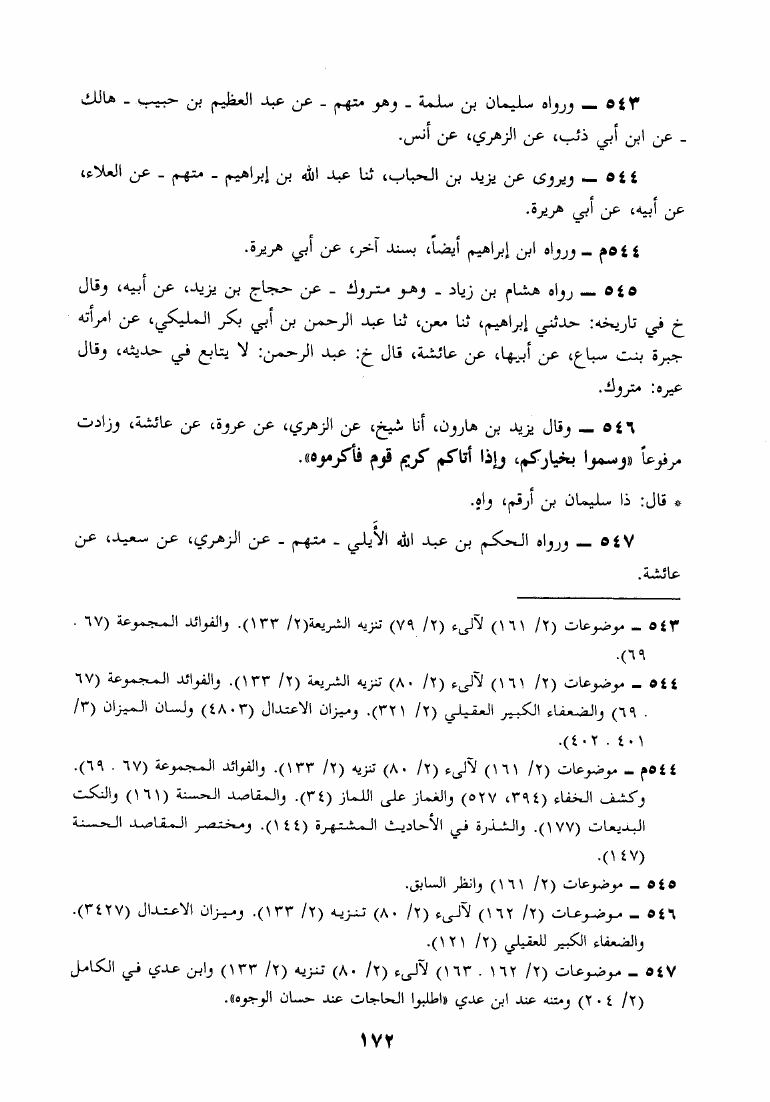 ٥٤٣ — ورواه سليمان بن سلمة - وهو متهم - عن عبد العظيم بن حبيب - هالك
- عن ابن أبي ذئب، عن الزهري، عن أنس.
٥٤٤ — ويروى عن يزيد بن الحباب، ثنا عبد الله بن إبراهيم - متهم - عن العلاء،
عن أبيه، عن أبي هريرة.
٥٤٤م - ورواه ابن إبراهيم أيضاً، بسند آخر، عن أبي هريرة.
٥٤٥ — رواه هشام بن زياد - وهو متروك - عن حجاج بن يزيد، عن أبيه، وقال
خ في تاريخه: حدثني إبراهيم، ثنا معن، ثنا عبد الرحمن بن أبي بكر المليكي، عن امرأته
جبرة بنت سباع، عن أبيها، عن عائشة، قال خ: عبد الرحمن: لا يتابع في حديثه، وقال
غيره: متروك.
٥٤٦ — وقال يزيد بن هارون، أنا شيخ، عن الزهري، عن عروة، عن عائشة، وزادت
مرفوعاً «وسموا بخياركم، وإذا أتاكم كريم قوم فأكرموه».
* قال: ذا سليمان بن أرقم، واهٍ.
٥٤٧ — ورواه الحكم بن عبد الله الأَيلي - متهم - عن الزهري، عن سعيد، عن
عائشة.
٥٤٣ - موضوعات (٢/ ١٦١) لآلىء (٢/ ٧٩) تنزيه الشريعة(٢/ ١٣٣). والفوائد المجموعة (٦٧ .
٦٩).
٥٤٤ - موضوعات (٢/ ١٦١) لآلىء (٢/ ٨٠) تنزيه الشريعة (٢/ ١٣٣). والفوائد المجموعة (٦٧
. ٦٩) والضعفاء الكبير العقيلي (٢/ ٣٢١). وميزان الاعتدال (٤٨٠٣) ولسان الميزان (٣/
٤٠١ . ٤٠٢).
٥٤٤م - موضوعات (٢/ ١٦١) لآلىء (٢/ ٨٠) تنزيه (٢/ ١٣٣). والفوائد المجموعة (٦٧ . ٦٩).
وكشف الخفاء (٣٩٤، ٥٢٧) والغماز على اللماز (٣٤). والمقاصد الحسنة (١٦١) والنكت
البديعات (١٧٧). والشذرة في الأحاديث المشتهرة (١٤٤). ومختصر المقاصد الحسنة
(١٤٧).
٥٤٥ - موضوعات (٢/ ١٦١) وانظر السابق.
٥٤٦ - موضوعات (٢/ ١٦٢) لآلىء (٢/ ٨٠) تنزيه (٢/ ١٣٣). وميزان الاعتدال (٣٤٢٧).
والضعفاء الكبير للعقيلي (٢/ ١٢١).
٥٤٧ - موضوعات (٢/ ١٦٢ . ١٦٣) لآلىء (٢/ ٨٠) تنزيه (٢/ ١٣٣) وابن عدي في الكامل
(٢/ ٢٠٤) ومتنه عند ابن عدي «اطلبوا الحاجات عند حسان الوجوه».
١٧٢